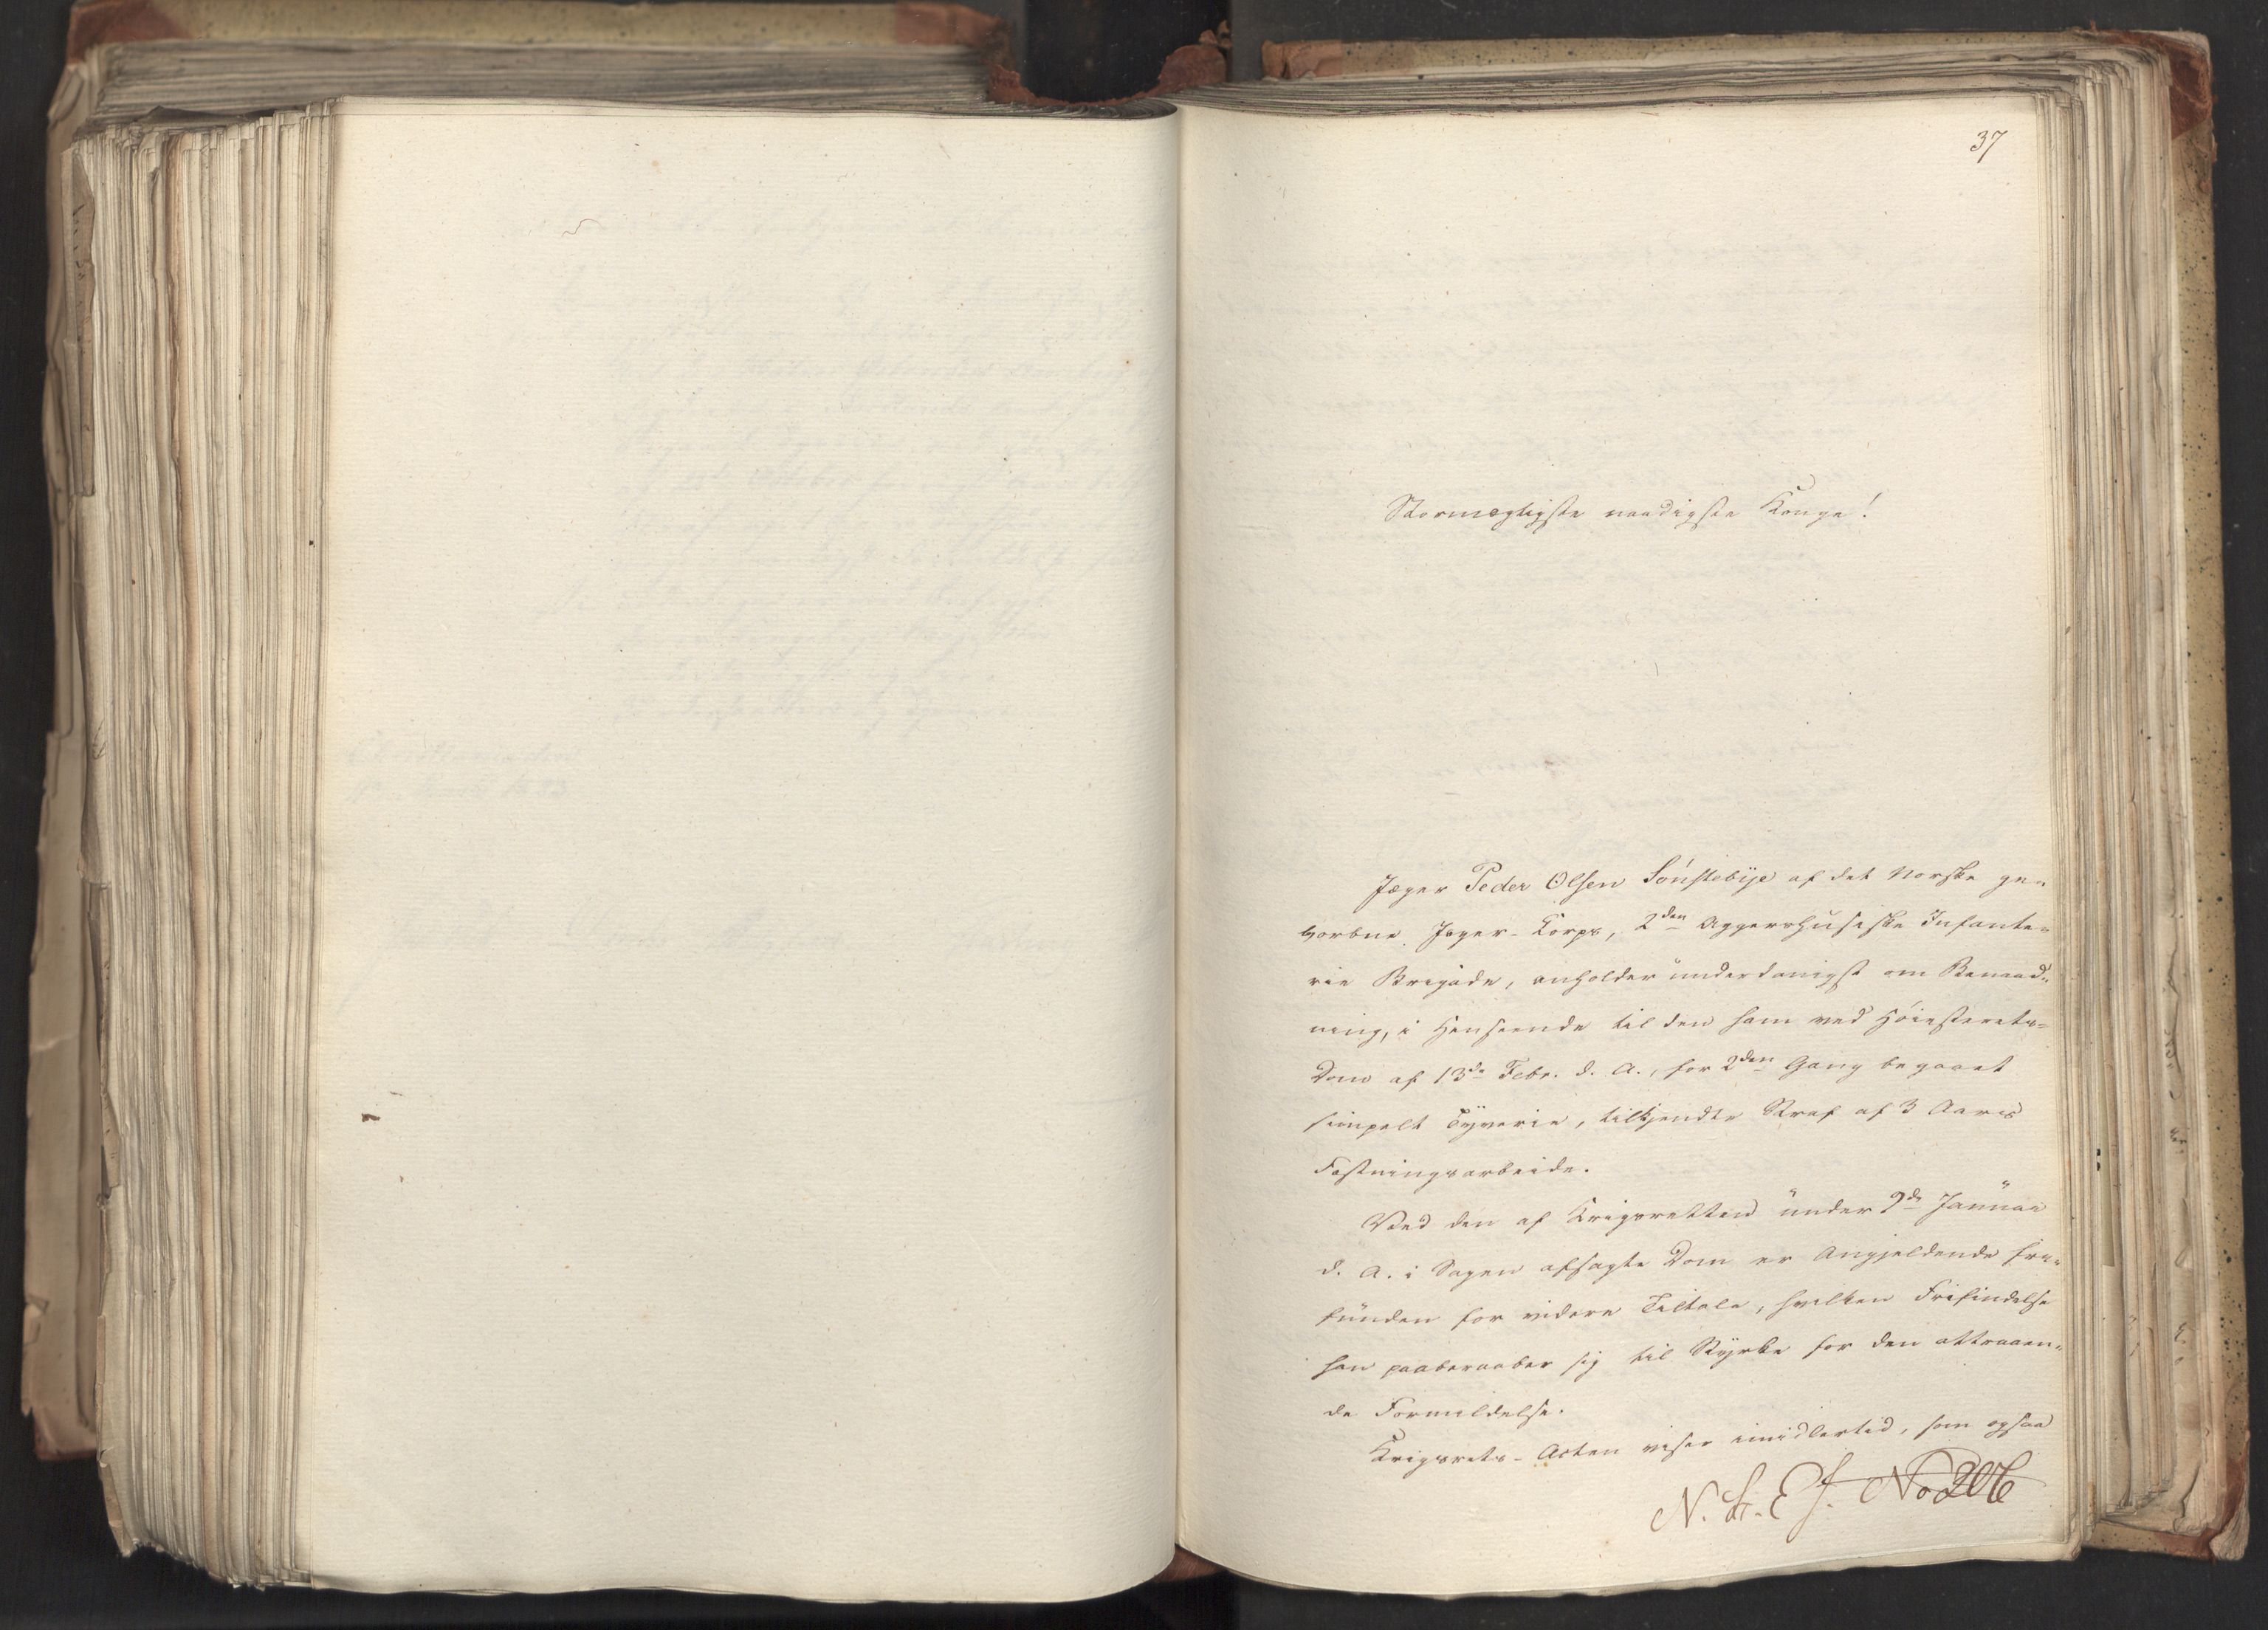 37
Stormægtigste naadigste Konge!
Jæger Peder Olsen Sönstebÿe af det Norske ge=
vorbne Jæger-Corps, 2den Aggershusiske Infante=
rie Brigade, anholder underdanigst om Benaad=
ning, i Henseende til den ham ved Höiesterets=
Dom af 13de Febr. d. A., for 2den Gang begaaet
simpelt Tÿverie, tilkjendte Straf af 3 Aars
Fæstningsarbeide.
Ved den af Krigsretten under 9de Januar
d. A. i Sagen afsagte Dom er Angjeldende fri=
funden for videre Tiltale, hvilken Frifindelse
han paaberaaber sig til Styrke for den attraaen=
de Formildelse.
Krigsrets-Acten viser imidlertid, som ogsaa
N. St. Ex. No